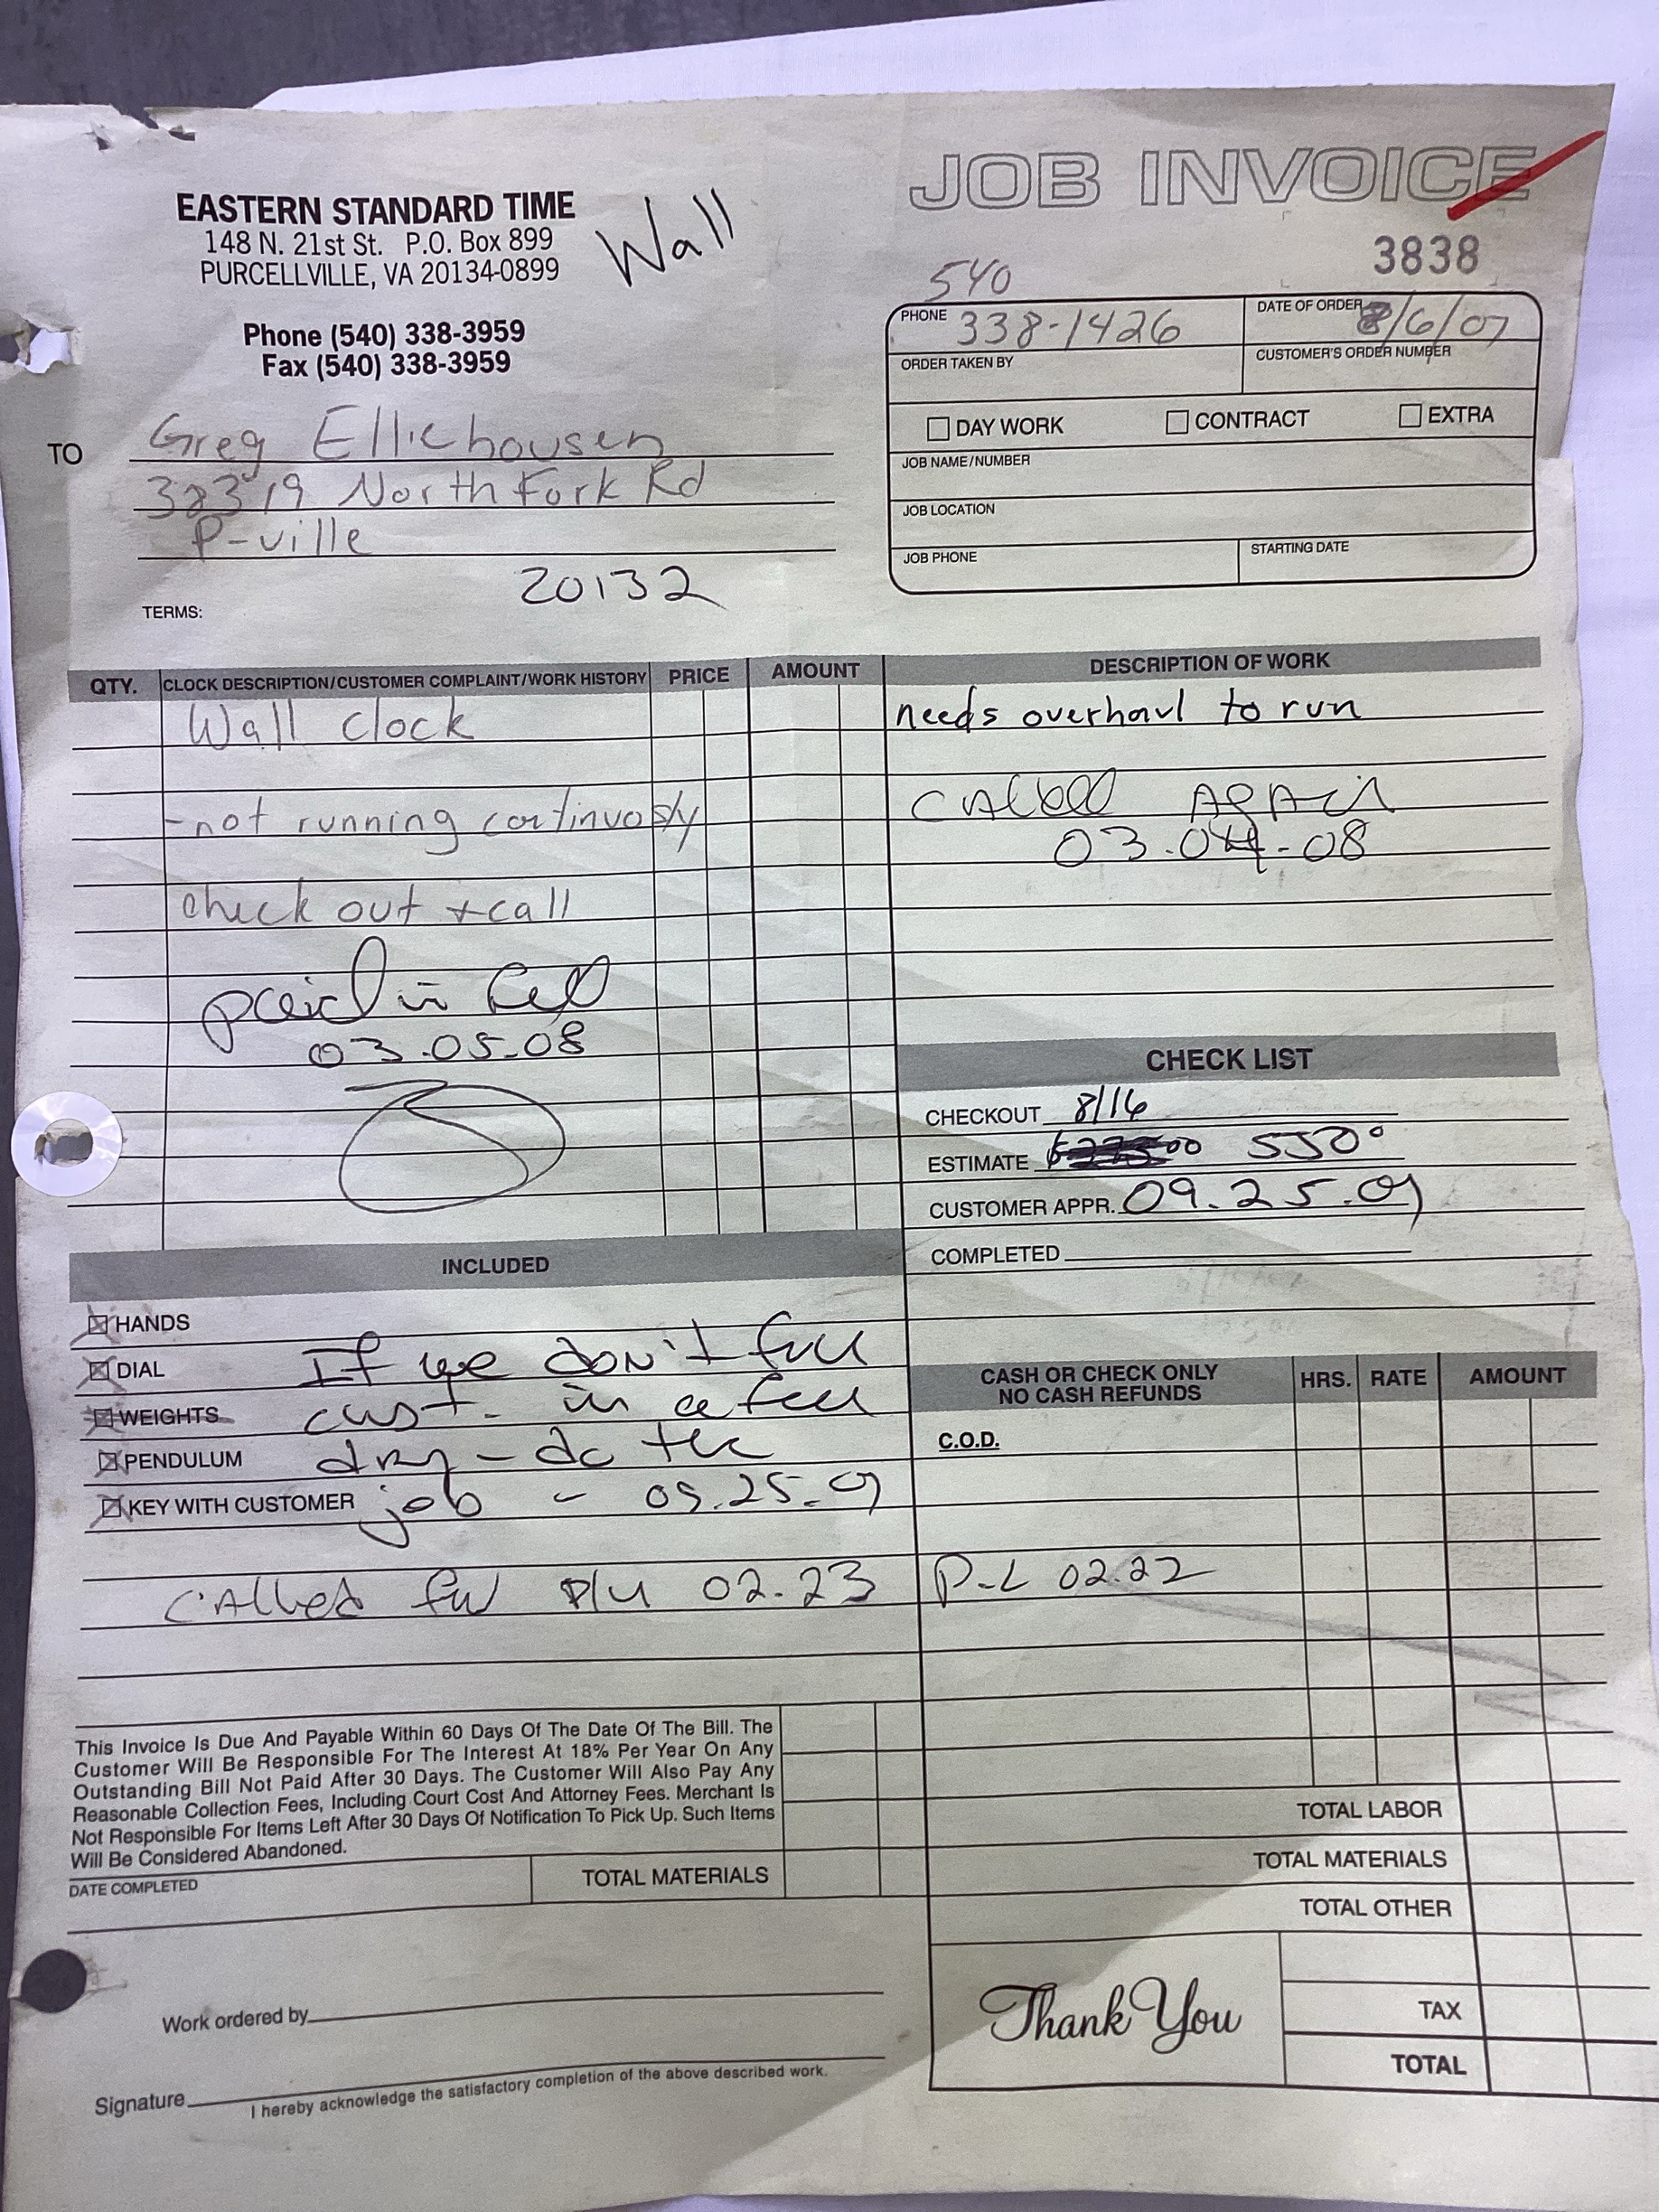 JOB INVOICE
EASTERN STANDARD TIME
148 N. 21st St. P.O. Box 899
PURCELLVILLE, VA 20134-0899
Wall
3838
Phone (540) 338-3959
Fax (540) 338-3959
540
PHONE 338-1426
DATE OF ORDER 8/6/07
ORDER TAKEN BY
CUSTOMER'S ORDER NUMBER
DAY WORK CONTRACT EXTRA
JOB NAME/NUMBER
JOB LOCATION
JOB PHONE STARTING DATE
TO Greg Elliehousen
North Fork Rd
P-ville
20132
TERMS:
QTY. CLOCK DESCRIPTION/CUSTOMER COMPLAINT/WORK HISTORY PRICE AMOUNT
Wall clock
-not running continuosly
check out + call
paid in full
03.05.08
DESCRIPTION OF WORK
needs overhaul to run
CALLED AGAIN
03.04.08
CHECK LIST
CHECKOUT 8/16
ESTIMATE 550°
CUSTOMER APPR. 09.25.07
COMPLETED
INCLUDED
HANDS
DIAL
WEIGHTS
PENDULUM
KEY WITH CUSTOMER
If we don't
cust. in a few
days - do the
job - 09.25.07
CALLED for P/U 02.23
CASH OR CHECK ONLY
NO CASH REFUNDS
HRS. RATE AMOUNT
C.O.D.
P-L 02.22
This Invoice Is Due And Payable Within 60 Days Of The Date Of The Bill. The
Customer Will Be Responsible For The Interest At 18% Per Year On Any
Outstanding Bill Not Paid After 30 Days. The Customer Will Also Pay Any
Reasonable Collection Fees, Including Court Cost And Attorney Fees. Merchant Is
Not Responsible For Items Left After 30 Days Of Notification To Pick Up. Such Items
Will Be Considered Abandoned.
DATE COMPLETED
TOTAL MATERIALS
TOTAL LABOR
TOTAL MATERIALS
TOTAL OTHER
Work ordered by
Signature
I hereby acknowledge the satisfactory completion of the above described work.
Thank You
TAX
TOTAL